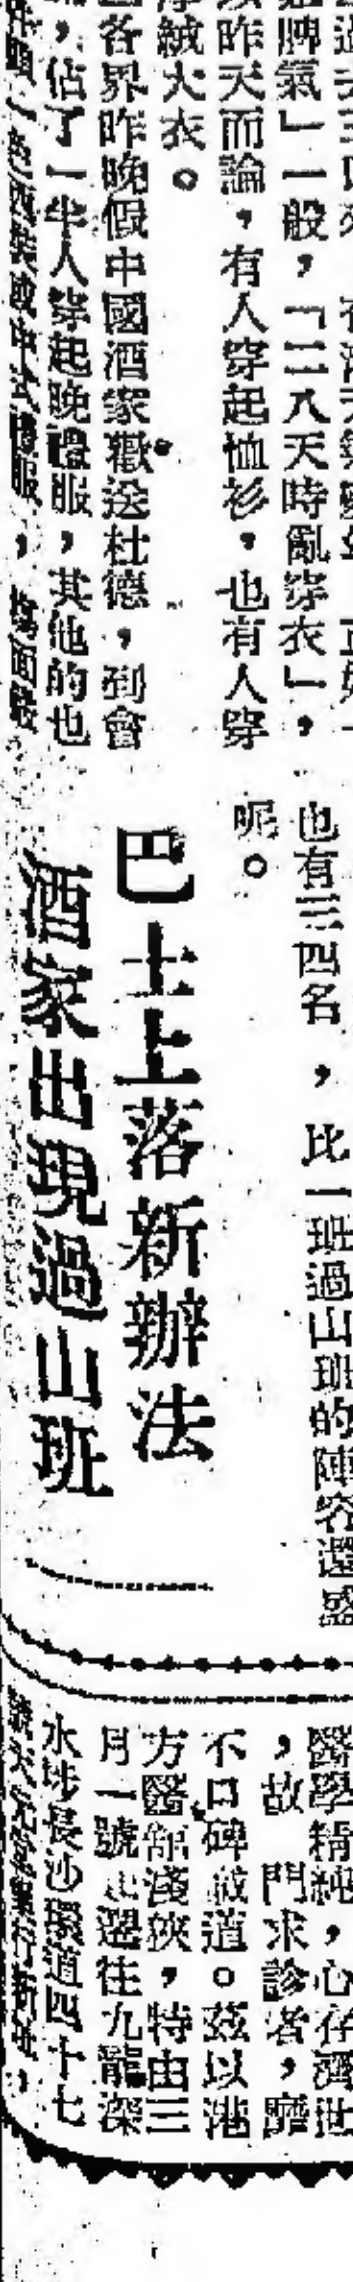 脾氣」一般，「二八天時亂穿衣」，
昨天而論，有人穿起恤衫，也有人穿
絨大衣。
各界昨晚假中國酒家歡送杜德，到會
，佔了一半人穿起晚禮服，其他的也
也有三四名，比一班過山班的陣容還盛
呢。
巴士上落新辦法
酒家出現過山班
醫學精純，心存濟世
，故 門求診者，靡
不口碑載道。茲以港
方醫館淺狹，特由三
月一號 遷往九龍深
水埗長沙環道四十七